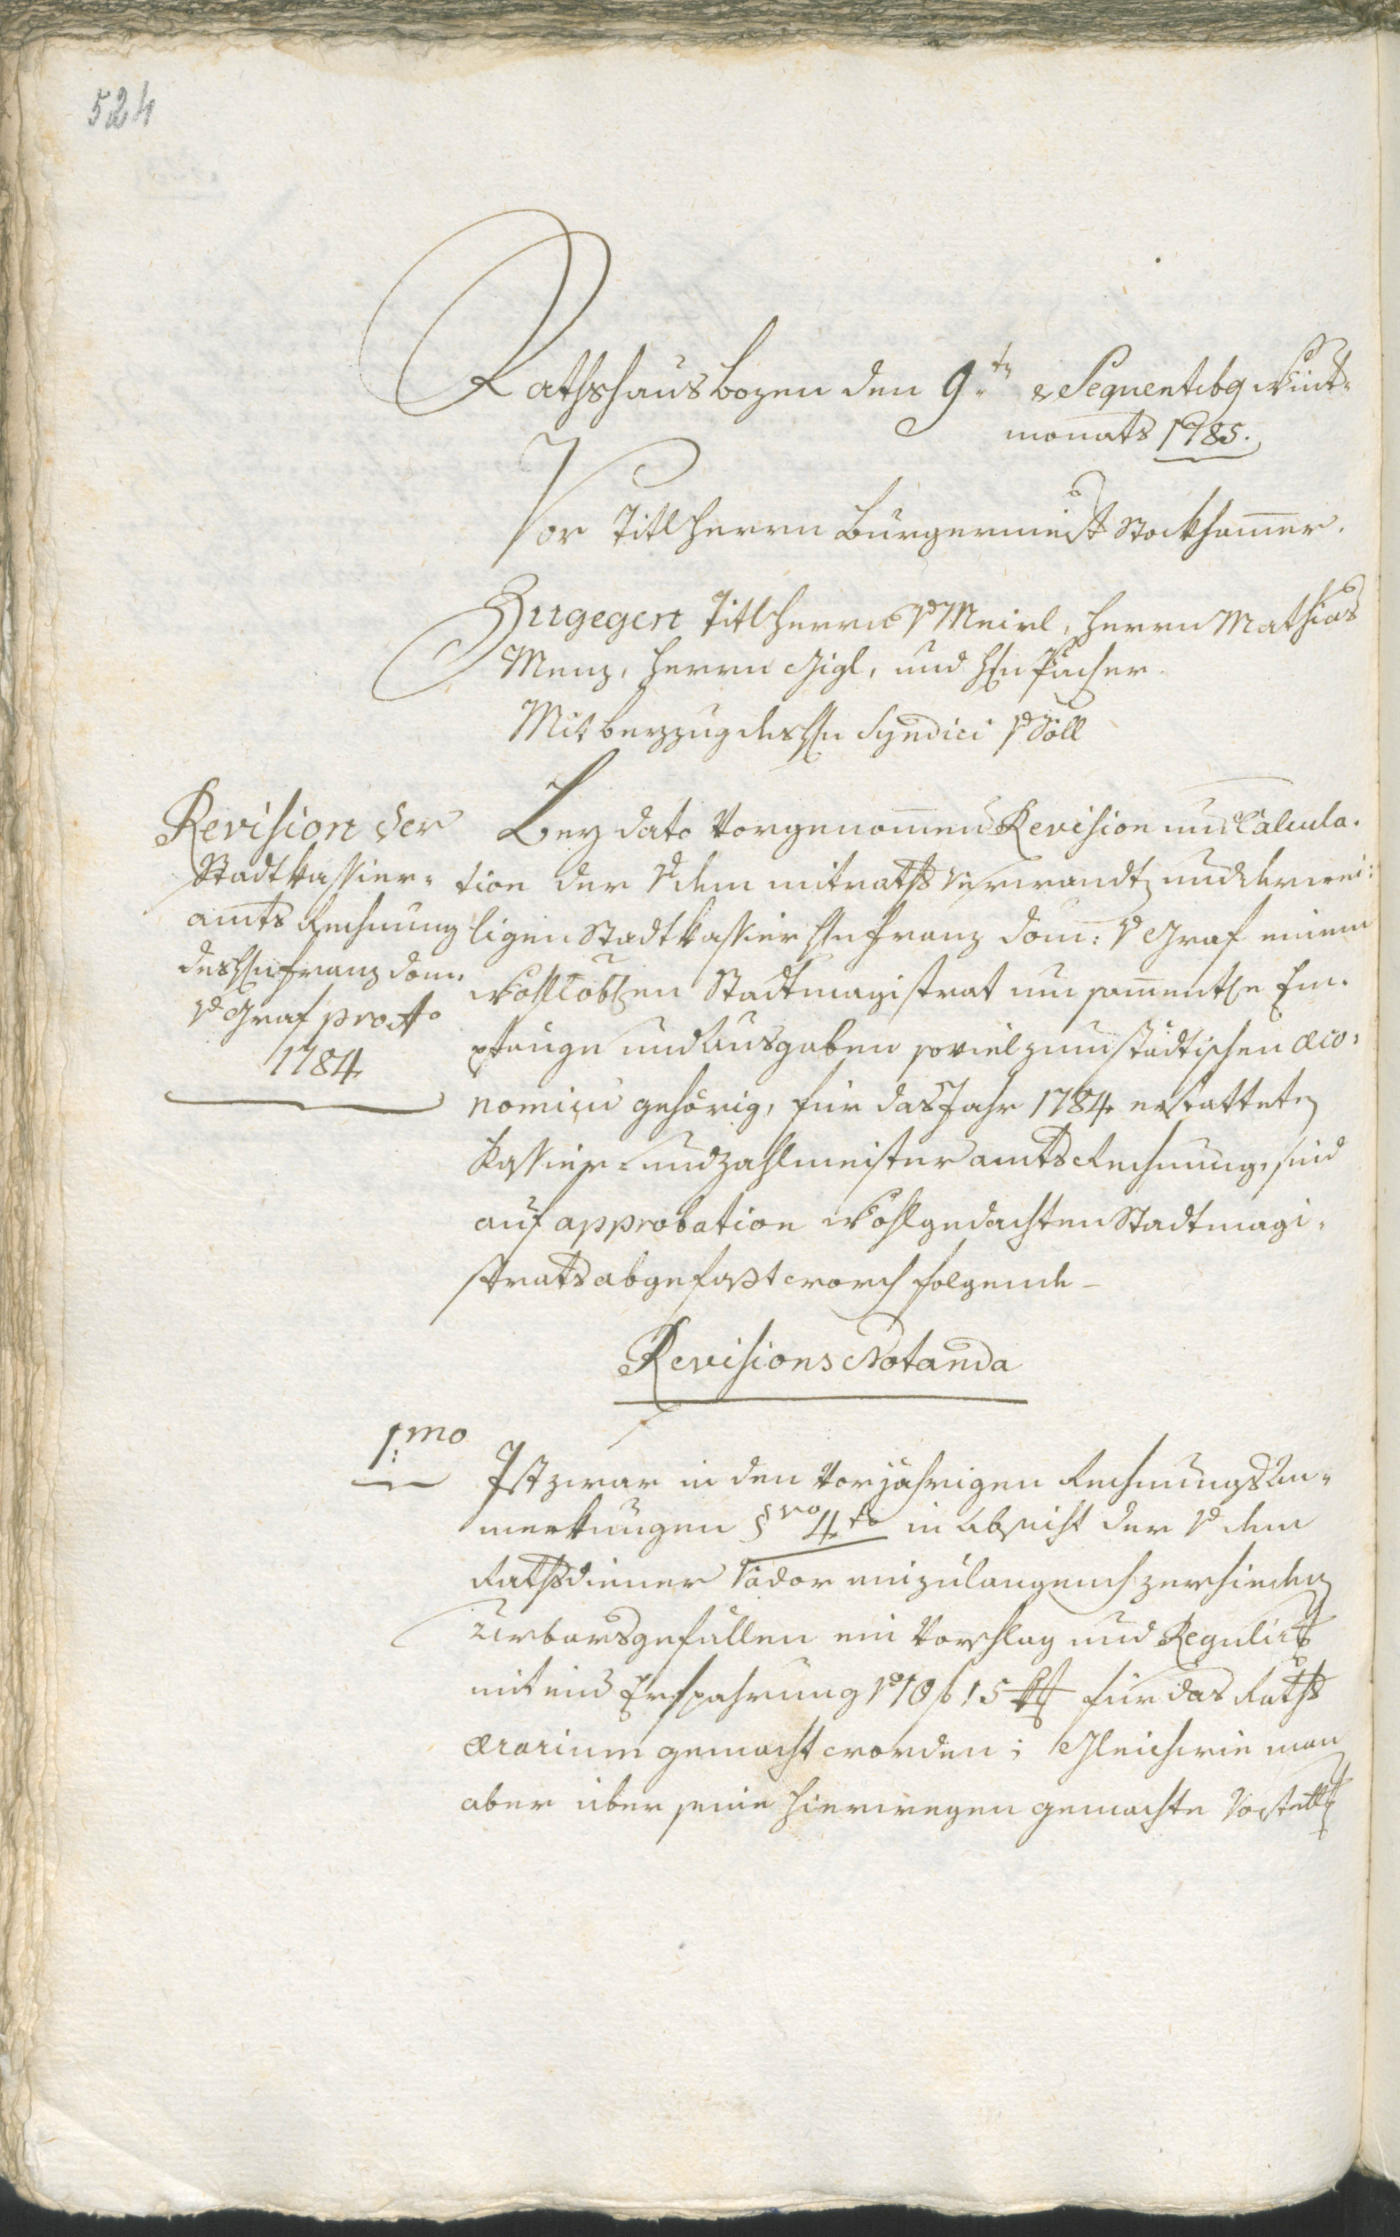 524
Rathshaus Bozen den 9.ten & Sequentibq Wint¬
monats 1785.
Vor Titl Herrn Burgermeister Stockhamer.
Zugegen Titl Herrn v Meirl, Herrn Mathias
Menz, Herrn Gigl, und Hn Pucher.
Mit beyzug des Hn Syndici v Söll
Revision der
Stadtkassier¬
amts Rechnung
des Hn Franz Dom:
v Graf pro Ao
1784
Bey dato vorgenomener Revision und Calcula¬
tion der v dem mitraths verwandten und derwei:
ligen Stadtkassier Hn Franz Dom: v Graf einem
Wohlloblen Stadtmagistrat um sammentle Em¬
pfänge und Ausgaben soviel zum städtischen œco¬
nomicu gehörig, für das Jahr 1784 erstatteten
Kassier- und Zahlmeisteramts Rechnung, sind
auf approbation Wohlgedachten Stadtmagi¬
strats abgefasst worden folgende
Revisions Notanda
1.mo
Ist zwar in den vorjährigen Rechnungs An¬
merkungen §vo 4to in Absicht der v dem
Rathsdiener einzulangen
Urbarsgefällen ein Vorschlag und Regulirung
mit einer Ersparung v 10 f 15 für das Raths
ærarium gemacht worden; Gleichwie man
aber über seine hierwegen gemachte Vorstellung